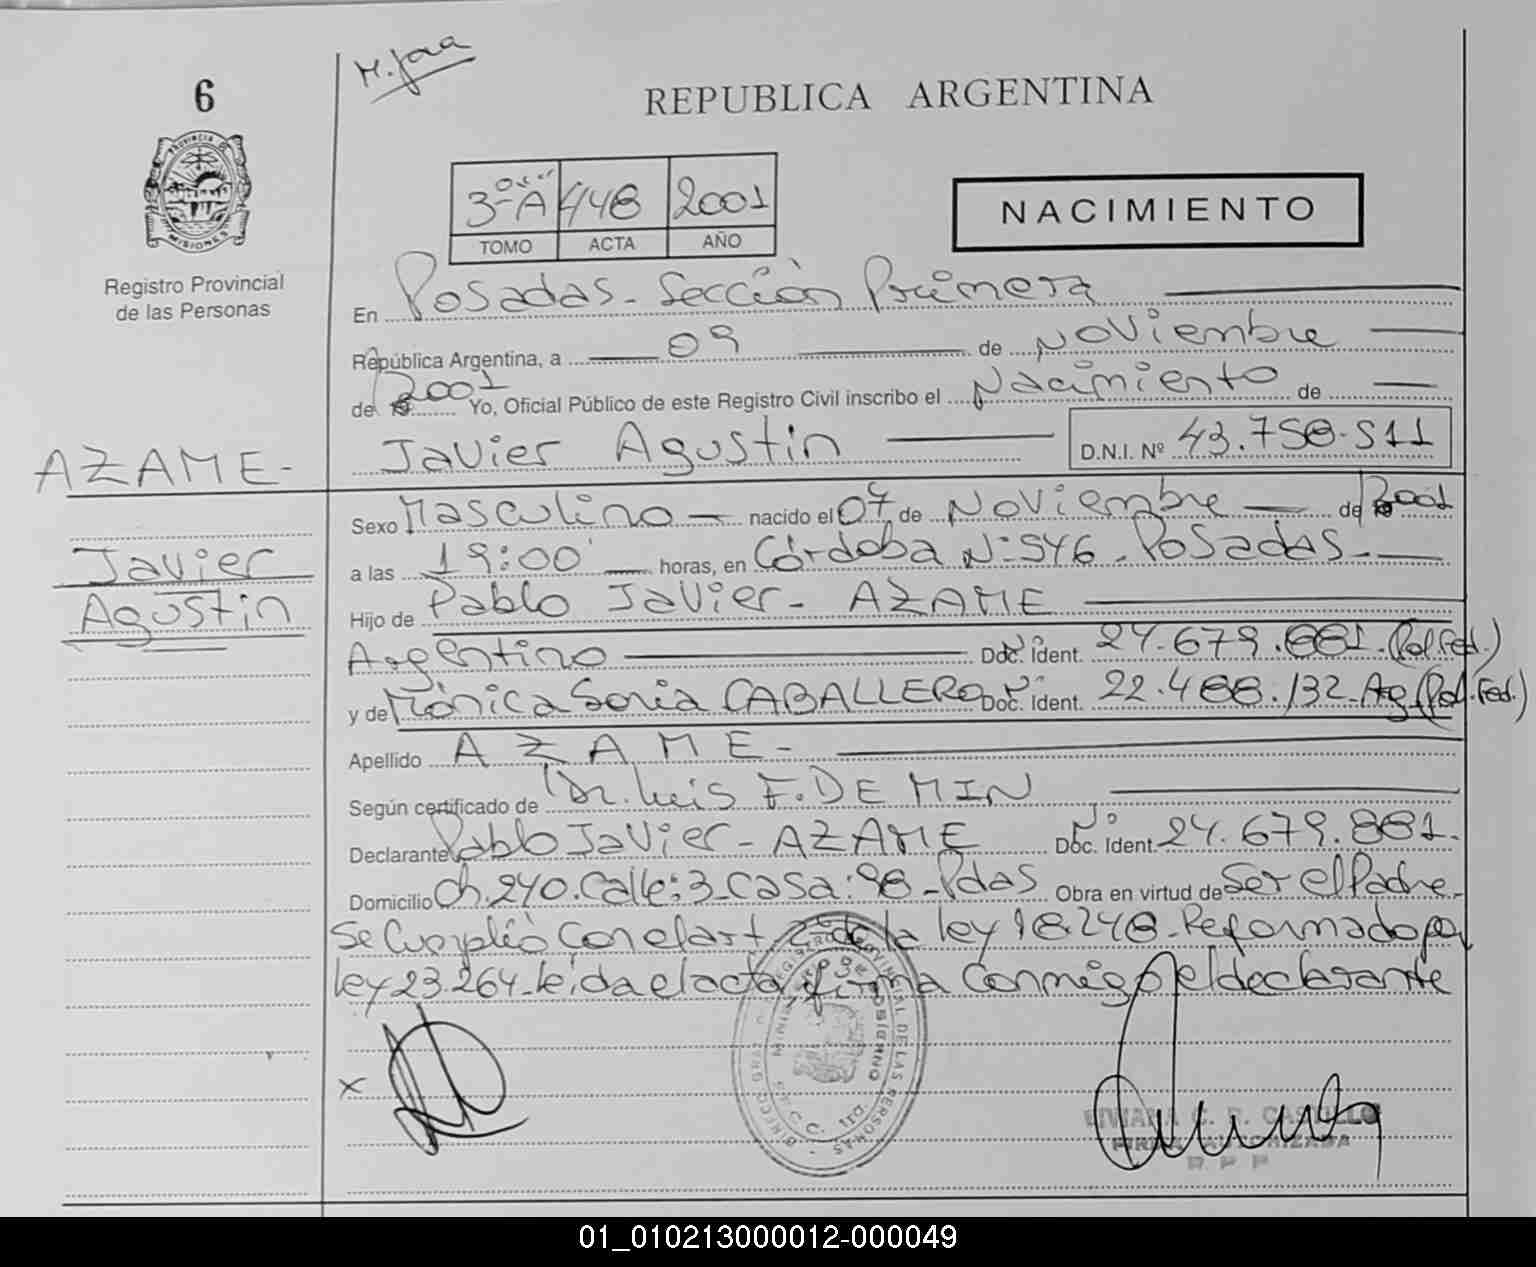 6
REPUBLICA ARGENTINA
PROVINCIA DE
MISIONES
Registro Provincial
de las Personas
3º A 448 2001
TOMO ACTA AÑO
NACIMIENTO
En Posadas - Sección Primera
República Argentina, a 09 de Noviembre
de 2001 Yo, Oficial Público de este Registro Civil inscribo el Nacimiento de
Javier Agustin D.N.I. Nº 43.758.511
AZAME -
Sexo Masculino nacido el 07 de Noviembre de 2001
Javier
a las 19:00 horas, en Córdoba Nº 546 - Posadas -
Agustin
Hijo de Pablo Javier - AZAME
Argentino Doc. Ident. 24.679.881 - (Pol. Fed.)
y de Mónica Sonia CABALLERO Doc. Ident. 22.488.132 - Arg (Pol. Fed.)
Apellido AZAME -
Según certificado de Dr. Luis F. DEMIN
Declarante Pablo Javier - AZAME Doc. Ident. 24.679.881 -
Domicilio Ch. 240. Calle: 3 - Casa: 98 - Pdas Obra en virtud de Ser el Padre -
Se Cumplió Con el art. de la ley 18.248 - Reformado por
ley 23.264 - leída el acta, firma Conmigo el declarante
x
C. R. CASTILLO
FIRMA AUTORIZADA
R P P
01_010213000012-000049